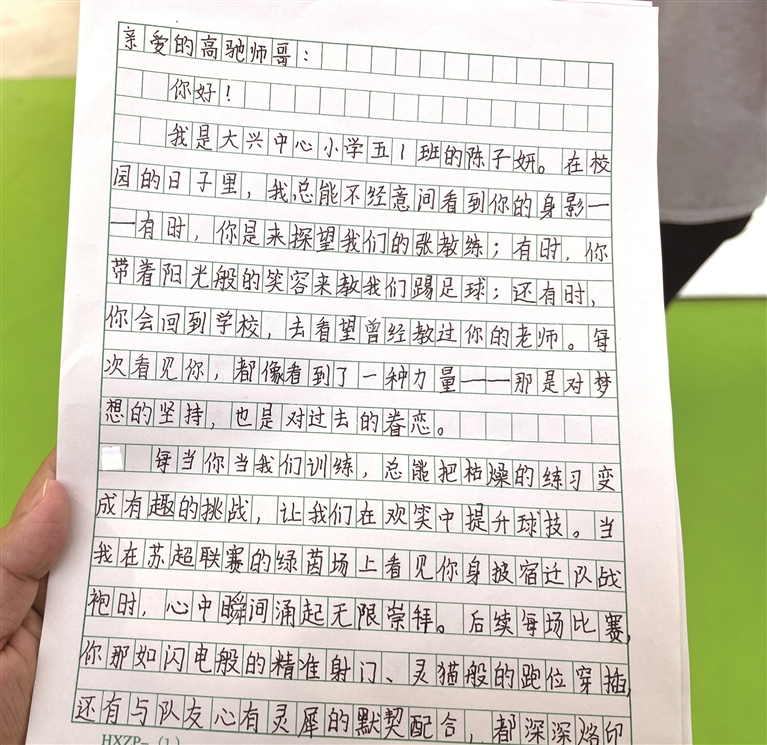 亲爱的高驰师哥：
你好！
我是大兴中心小学五1班的陈子妍。在校
园的日子里，我总能不经意间看到你的身影一
一有时，你是来探望我们的张教练；有时，你
带着阳光般的笑容来教我们踢足球；还有时，
你会回到学校，去看望曾经教过你的老师。每
次看见你，都像看到了一种力量——那是对梦
想的坚持，也是对过去的眷恋。
每当你当我们训练，总能把枯燥的练习变
成有趣的挑战，让我们在欢笑中提升球技。当
我在苏超联赛的绿茵场上看见你身披宿迁队战
袍时，心中瞬间涌起无限崇拜。后续每场比赛，
你那如闪电般的精准射门、灵猫般的跑位穿插，
还有与队友心有灵犀的默契配合，都深深烙印
HXZP-（1）